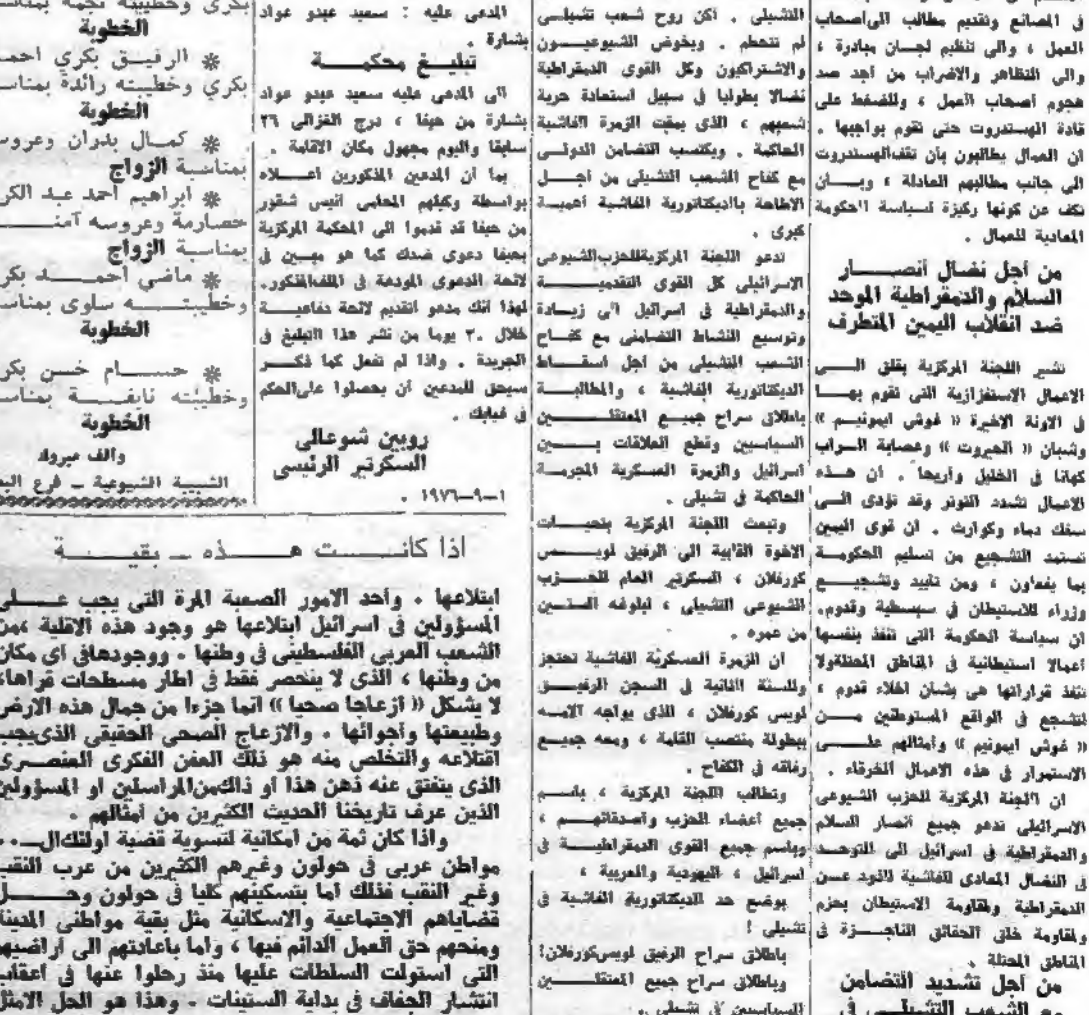 فى المصانع وتقديم مطالب الى اصحاب
العمل ، والى تنظيم لجسان مبادرة ،
والى التظاهر والاضراب من اجد صد
هجوم أصحاب العمل ، وللضغط على
قادة الهستدروت حتى تقوم بواجبها .
ان العمال يطالبون بأن تقف الهستدروت
الى جانب مطالبهم العادلة ، وبـــان
تكف عن كونها ركيزة لسياسة الحكومة
المعادية للعمال .
من أجل نضال أنصـــــار
السلام والديمقراطية الموحد
ضد انقلاب اليمين المتطرف
تشير اللجنة المركزية بقلق الـــى
الاعمال الاستفزازية التى تقوم بهــا
فى الاونة الاخيرة « غوش ايمونيـم »
وشبان « الحيروت » وعصابة الــراب
كهانا فى الخليل وأريحا . ان هــذه
الاعمال تشدد التوتر وقد تؤدى الــى
سفك دماء وكوارث . ان قوى اليمين
تستمد التشجيع من تسليم الحكومــة
بما يفعلون ، ومن تأييد وتشجيــع
وزراء للاستيطان فى سبسطية وقدوم.
ان سياسة الحكومة التى تنفذ بنفسها
أعمالا استيطانية فى المناطق المحتلة ولا
تنفذ قراراتها هى بشان اخلاء قدوم ،
تشجع فى الواقع المستوطنين مــن
« غوش ايمونيم » وأمثالهم علـــى
الاستمرار فى هذه الاعمال الخرقاء .
ان اللجنة المركزية للحزب الشيوعى
الاسرائيلى تدعو جميع أنصار السلام
والديمقراطية فى اسرائيل الى التوحــد
فى النضال المعادى للفاشية للذود عــن
الديمقراطية ولمقاومة الاستيطان بحزم
ولمقاومة خلق الحقائق الناجــزة فى
المناطق المحتلة .
من أجل تشديد التضامن
مع الشعب التشيلــى فى
التشيلى . لكن روح شعب تشيلــى
لم تتحطم . ويخوض الشيوعيـــون
والاشتراكيون وكل القوى الدمقراطية
نضالا بطوليا فى سبيل استعادة حرية
شعبهم ، الذى يمقت الزمرة الفاشية
الحاكمة . ويكتسب التضامن الدولــى
مع كفاح الشعب التشيلى من اجــل
الاطاحة بالديكتاتورية الفاشية أهميــة
كبرى .
تدعو اللجنة المركزية للحزب الشيوعى
الاسرائيلى كل القوى التقدميـــــة
والدمقراطية فى اسرائيل الى زيــادة
وتوسيع النشاط التضامنى مع كفــاح
الشعب التشيلى من اجل اسقــاط
الديكتاتورية الفاشية ، والمطالبــة
باطلاق سراح جميــع المعتقلـــين
السياسيين وقطع العلاقات بـــين
اسرائيل والزمرة العسكرية المجرمــة
الحاكمة فى تشيلى .
وتبعث اللجنة المركزية بتحيــات
الاخوة القلبية الى الرفيق لويـــس
كورفلان ، السكرتير العام للحـــزب
الشيوعى التشيلى ، لبلوغه الستــين
من عمره .
ان الزمرة العسكرية الفاشية تحتجز
وللسنة الثانية فى السجن الرفيــق
لويس كورفلان ، الذى يواجه الامــه
ببطولة منتصب القامة ، ومعه جميــع
رفاقه فى الكفاح .
وتطالب اللجنة المركزية ، باســم
جميع أعضاء الحزب وأصدقائهـــم ،
وباسم جميع القوى الدمقراطيـــة فى
اسرائيل ، اليهودية والعربية ،
بوضع حد للديكتاتورية الفاشية فى
تشيلى !
باطلاق سراح الرفيق لويس كورفلان!
وباطلاق سراح جميع المعتقلـــين
السياسيين فى تشيلى .
المدعى عليه : سعيد عبدو عواد
بشارة .
تبليــغ محكمــــة
الى المدعى عليه سعيد عبدو عواد
بشارة من حيفا ، درج الغزالى ٢٦
سابقا واليوم مجهول مكان الاقامة .
بما أن المدعين المذكورين أعـــلاه
بواسطة وكيلهم المحامى أنيس شقور
من حيفا قد قدموا الى المحكمة المركزية
بحيفا دعوى ضدك كما هو مبــين فى
لائحة الدعوى المودعة فى الملف المذكور.
لهذا انك مدعو لتقديم لائحة دفاعيــة
خلال ٣٠ يوما من نشر هذا التبليغ فى
الجريدة . واذا لم تفعل كما ذكــر
سيحق للمدعين أن يحصلوا على الحكم
فى غيابك .
روبين شوعالى
السكرتير الرئيسى
١-٩-١٩٧٦ .
بكرى وخطيبته نجمة بمناسـ
الخطوبة
* الرفيــق بكري احمـ
بكري وخطيبته رائدة بمناسـ
الخطوبة
* كمــال بدران وعروسـ
بمناسبة الزواج
* ابراهيم احمد عبد الكر
خصارمة وعروسه آمنــــ
بمناسبة الزواج
* ماضي احمــــد بكر
وخطيبتــــه سلوى بمناسـ
الخطوبة
* حســـام حسن بكر
وخطيبته نايفــــة بمناسـ
الخطوبة
والف مبروك
الشبيبة الشيوعية ــ فرع البـ
اذا كانـــــت هـــــذه ــ بقيــــــة
ابتلاعها . وأحد الامور الصعبة المرة التى يجب علــــى
المسؤولين فى اسرائيل ابتلاعها هو وجود هذه الاقلية ،من
الشعب العربى الفلسطينى فى وطنها . ووجودها فى اى مكان
من وطنها ، الذى لا ينحصر فقط فى اطار مسطحات قراها،
لا يشكل « ازعاجا صحيا » انما جزءا من جمال هذه الارض
وطبيعتها وأجوائها . والازعاج الصحى الحقيقى الذى يجب
اقتلاعه والتخلص منه هو ذلك العفن الفكرى العنصــرى
الذى يتفتق عنه ذهن هذا أو ذاك من المراسلين او المسؤولين
الذين عرف تاريخنا الحديث الكثيرين من امثالهم .
واذا كان ثمة من امكانية لتسوية قضية اولئك الــ..
مواطن عربى فى حولون وغيرهم الكثيرين من عرب النقب
وغير النقب فذلك اما بتسكينهم كليا فى حولون وحـــل
قضاياهم الاجتماعية والاسكانية مثل بقية مواطنى المدينة
ومنحهم حق العمل الدائم فيها ، واما باعادتهم الى اراضيهم
التى استولت السلطات عليها منذ رحلوا عنها فى اعقاب
انتشار الجفاف فى بداية الستينات . وهذا هو الحل الامثل